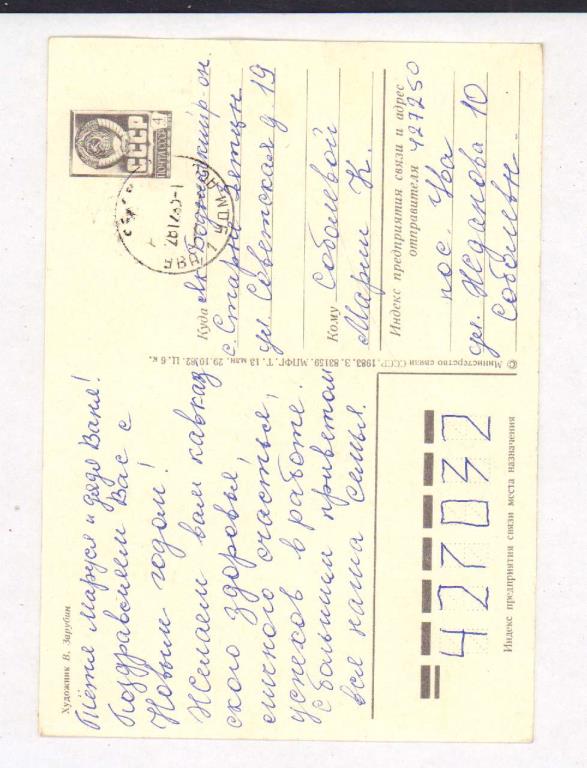 Художник В. Зарубин
Тётя Маруся и дядя Ваня!
Поздравляем Вас с
Новым годом!
Желаем вам кавказ
ского здоровья,
личного счастья,
успехов в работе.
С большим приветом
вся наша семья.
СССР
ПОЧТА СССР 4
Куда
с. Старые Зятцы
ул. Советская д 19
Кому Соболевой
Марии К.
Индекс предприятия связи и адрес
отправителя 427250
пос. Ува
ул. Жданова 10
© Министерство связи СССР, 1983. З. 83159. МПФГ. Т. 13 млн. 29.10.82. Ц. 6 к.
427032
Индекс предприятия связи места назначения